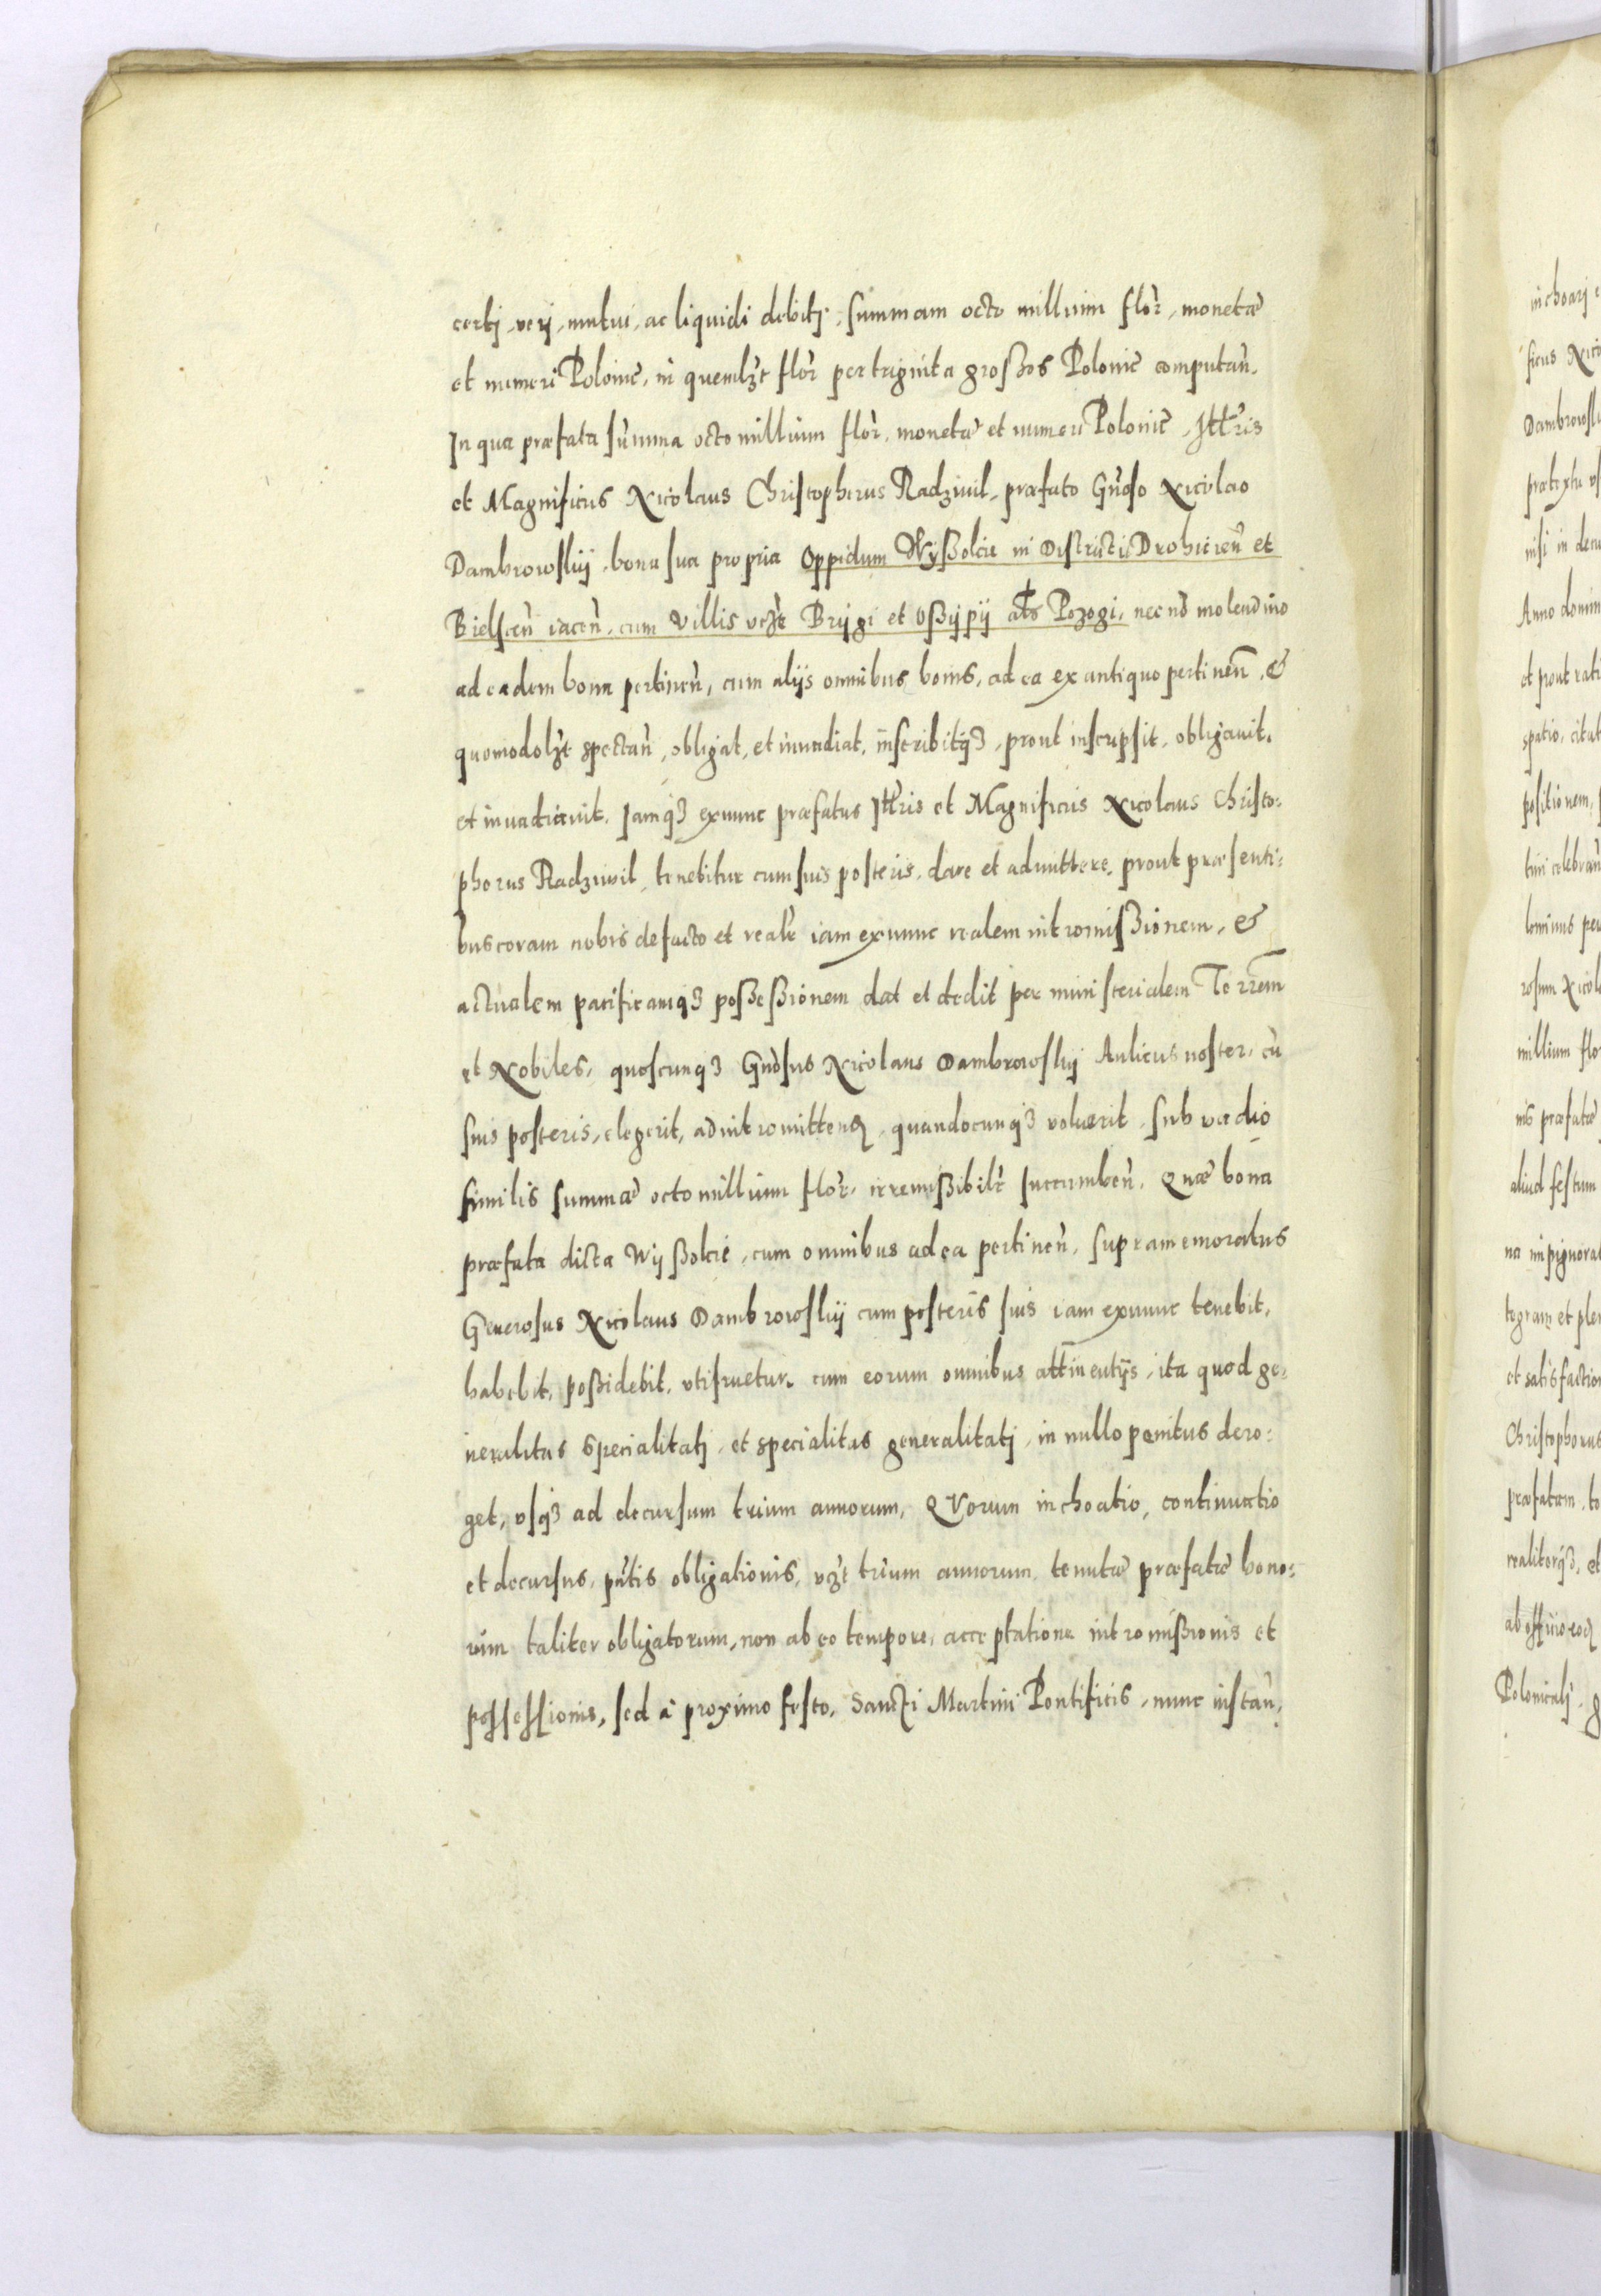 certj, verj, mutui, ac liquidi debitj, summam octo millium flor, monetæ
et numeri Polonic, in quemlʒt flor per triginta großos Polonic computan.
In qua præfata summa octo millium flor, monetæ et numeri Polonic, Illris
et Magnificus Nicolaus Christophorus Radziuil, præfato Gnoso Nicolao
Dambrowskij, bona sua propria Oppidum Wijßokie in Districtu Drohicien et
Bielscen iacen, cum Villis vcʒt Brijgi et Oßijpij als Pozogi, nec nō molendino
ad eadem bona pertinen, cum alijs omnibus bonis, ad ea ex antiquo pertinen, &
quomodolʒt spectan, obligat, et inuadiat, inscribitqʒ, prout inscripsit, obligauit,
et inuadiauit. Jamqʒ exnunc præfatus Illris et Magnificus Nicolaus Christo:
phorus Radziuil, tenebitur cum suis posteris, dare et admittere, prout præsenti:
bus coram nobis de facto et realr iam exnunc realem intromißionem, &
actualem pacificamqʒ poßeßionem dat et dedit per ministerialem Terrem
et Nobiles, quoscunqʒ Gnosus Nicolaus Dambrowskij Aulicus noster, cū
suis posteris, elegerit, ad intromitten, quandocunqʒ voluerit, sub vadio
similis summæ octo millium flor, irremißibilr succumben. Quæ bona
præfata dicta Wijßokie, cum omnibus ad ea pertinen, supramemoratus
Generosus Nicolaus Dambrowskij cum posteris suis iam exnunc tenebit,
habebit, poßidebit, vtifruetur, cum eorum omnibus attinentijs, ita quod ge:
neralitas specialitatj, et specialitas generalitatj, in nullo penitus dero:
get, vsqʒ ad decursum trium annorum, Quorum inchoatio, continuatio
et decursus, pntis obligationis, vcʒt trium annorum, tenutæ præfatæ bono:
rum taliter obligatorum, non ab eo tempore, acceptatione intromißionis et
possessionis, sed à proximo festo, Sancti Martini Pontificis, nunc instan,
inchoarj
ficus Nico
Dambrowsk
prætextu
nisi in decu
Anno domin
et prout rati
spatio, citat
positionem,
tini celebran
rosum Nicol
millium flo
nis præfatæ
aliud festum
na impignorat
tegram et ple
et satisfaction
Christophorus
præfatam, to
realiterqʒ, et
ab officio eoꝝ
Polonicalj,